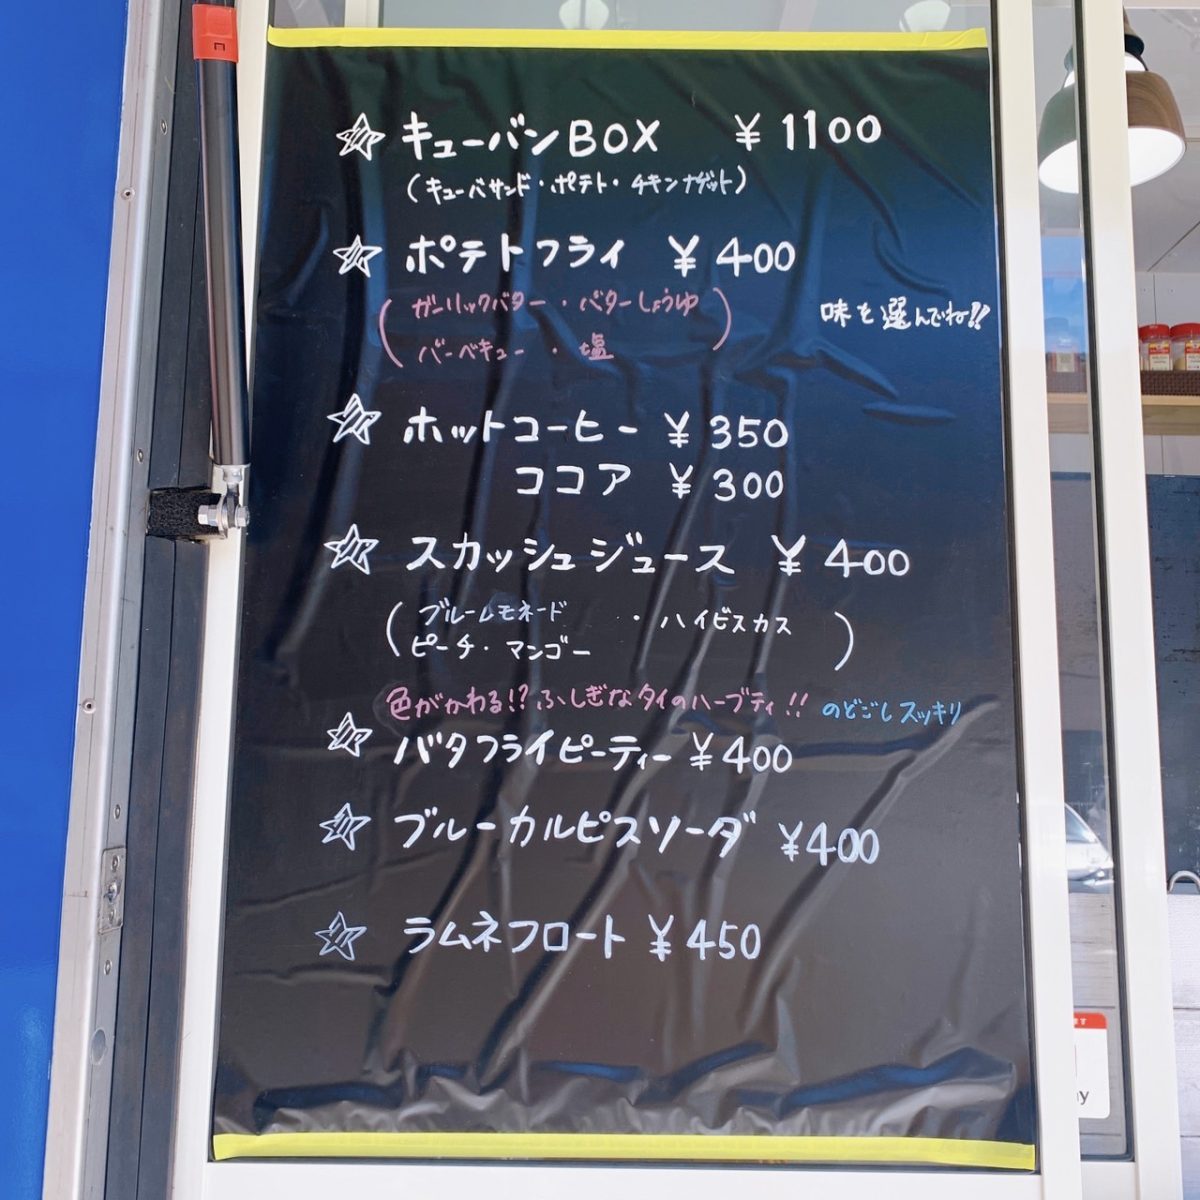 キューバンBOX ￥1100
(キューバサンド・ポテト・チキンナゲット)
ポテトフライ ￥400
(ガーリックバター・バターしょうゆ
バーベキュー・塩)
味を選んでね!!
ホットコーヒー ￥350
ココア ￥300
スカッシュジュース ￥400
(ブルームモネード ・ハイビスカス
ピーチ・マンゴー)
色がかわる!?ふしぎなタイのハーブティ!! のどごしスッキリ
バタフライピーティー ￥400
ブルーカルピスソーダ ￥400
ラムネフロート ￥450